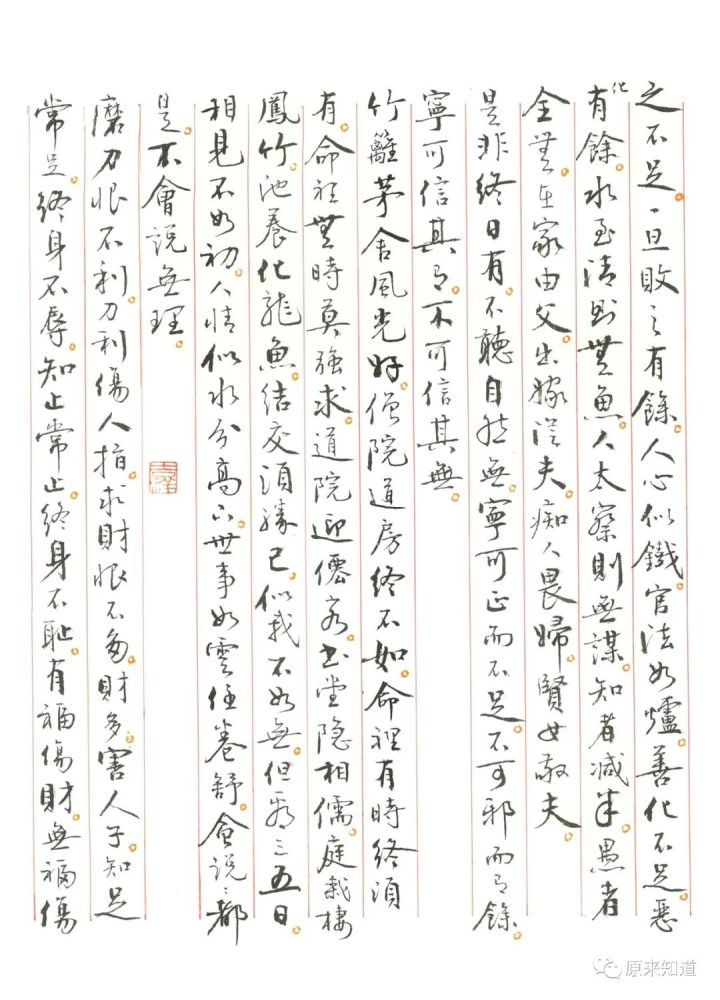 之不足。一旦敗之有餘。人心似鐵。官法如爐。善化不足。惡
化有餘。水至清則無魚。人太察則無謀。知者減半。愚者
全無。在家由父。出嫁從夫。痴人畏婦。賢女敬夫。
是非終日有。不聽自然無。寧可正而不足。不可邪而有餘。
寧可信其有。不可信其無。
竹籬茅舍風光好。僧院道房終不如。命裡有時終須
有。命裡無時莫強求。道院迎僊客。書堂隱相儒。庭栽棲
鳳竹。池養化龍魚。結交須勝己。似我不如無。但看三五日。
相見不如初。人情似水分高下。世事如雲任卷舒。會說說都
是。不會說無理。
磨刀恨不利。刀利傷人指。求財恨不多。財多害人子。知足
常足。終身不辱。知止常止。終身不恥。有福傷財。無福傷
原来知道